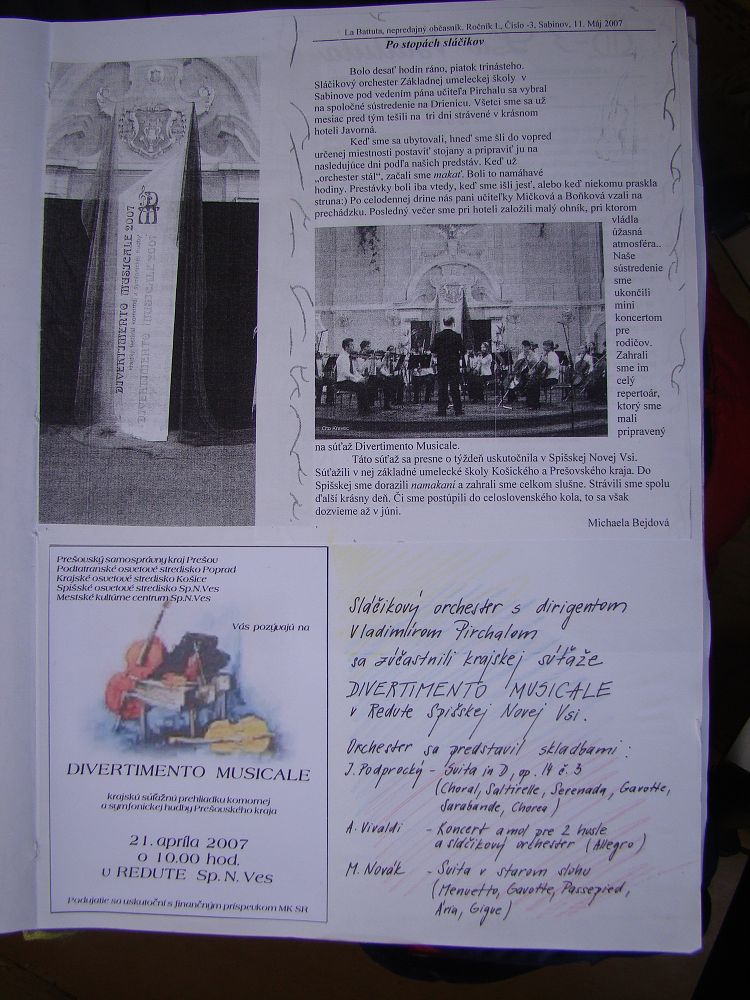 La Battuta, nepredajný občasník, Ročník I., Číslo -3, Sabinov, 11. Máj 2007
Po stopách sláčikov
Bolo desať hodín ráno, piatok trinásteho.
Sláčikový orchester Základnej umeleckej školy v
Sabinove pod vedením pána učiteľa Pirchalu sa vybral
na spoločné sústredenie na Drienicu. Všetci sme sa už
mesiac pred tým tešili na tri dni strávené v krásnom
hoteli Javorná.
Keď sme sa ubytovali, hneď sme šli do vopred
určenej miestnosti postaviť stojany a pripraviť ju na
nasledujúce dni podľa našich predstáv. Keď už
„orchester stál", začali sme makať. Boli to namáhavé
hodiny. Prestávky boli iba vtedy, keď sme išli jesť, alebo keď niekomu praskla
struna:) Po celodennej drine nás pani učiteľky Mičková a Boňková vzali na
prechádzku. Posledný večer sme pri hoteli založili malý ohník, pri ktorom
vládla
úžasná
atmosféra..
Naše
sústredenie
sme
ukončili
mini
koncertom
pre
rodičov.
Zahrali
sme im
celý
repertoár,
ktorý sme
mali
pripravený
na súťaž Divertimento Musicale.
Táto súťaž sa presne o týždeň uskutočnila v Spišskej Novej Vsi.
Súťažili v nej základné umelecké školy Košického a Prešovského kraja. Do
Spišskej sme dorazili namakaní a zahrali sme celkom slušne. Strávili sme spolu
ďalší krásny deň. Či sme postúpili do celoslovenského kola, to sa však
dozvieme až v júni.
Michaela Bejdová
DIVERTIMENTO MUSICALE 2007
Prešovský samosprávny kraj Prešov
Podtatranské osvetové stredisko Poprad
Krajské osvetové stredisko Košice
Spišské osvetové stredisko Sp.N.Ves
Mestské kultúrne centrum Sp.N.Ves
Vás pozývajú na
DIVERTIMENTO MUSICALE
krajskú súťažnú prehliadku komornej
a symfonickej hudby Prešovského kraja
21. apríla 2007
o 10.00 hod.
v REDUTE Sp. N. Ves
Podujatie sa uskutoční s finančným príspevkom MK SR
Sláčikový orchester s dirigentom
Vladimírom Pirchalom
sa zúčastnili krajskej súťaže
DIVERTIMENTO MUSICALE
v Redute Spišskej Novej Vsi.
Orchester sa predstavil skladbami:
J. Podprocký - Suita in D, op. 14 č. 3
(Choral, Saltirelle, Serenada, Gavotte,
Sarabande, Chorea)
A. Vivaldi - Koncert a mol pre 2 husle
a sláčikový orchester (Allegro)
M. Novák - Suita v starom slohu
(Menuetto, Gavotte, Passepied,
Ária, Gigue)